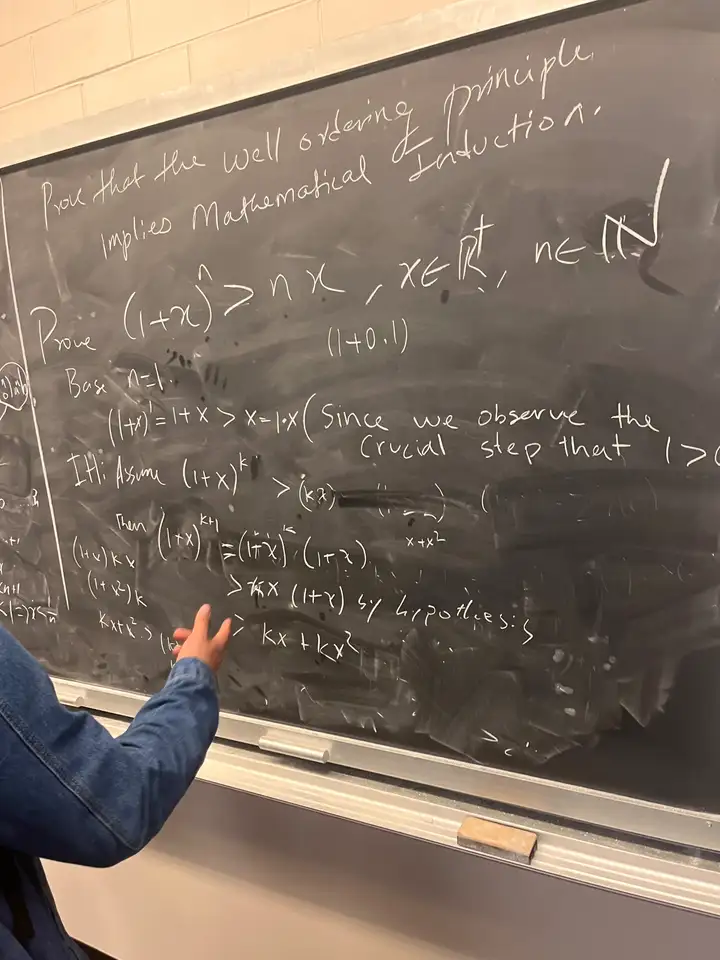 Prove that the well ordering principle
implies Mathematical Induction.
Prove (1+x)^n > nx, x∈ℝ⁺, n∈ℕ
(1+0.1)
Base n=1.
(1+x)^1 = 1+x > x = 1·x (Since we observe the
crucial step that 1>0
IH: Assume (1+x)^k > (kx)
x+x²
Then (1+x)^{k+1} = (1+x)^k · (1+x)
(1+x)kx
> kx (1+x) by hypothesis
(1+x²)k
= kx + kx²
kx+x²>